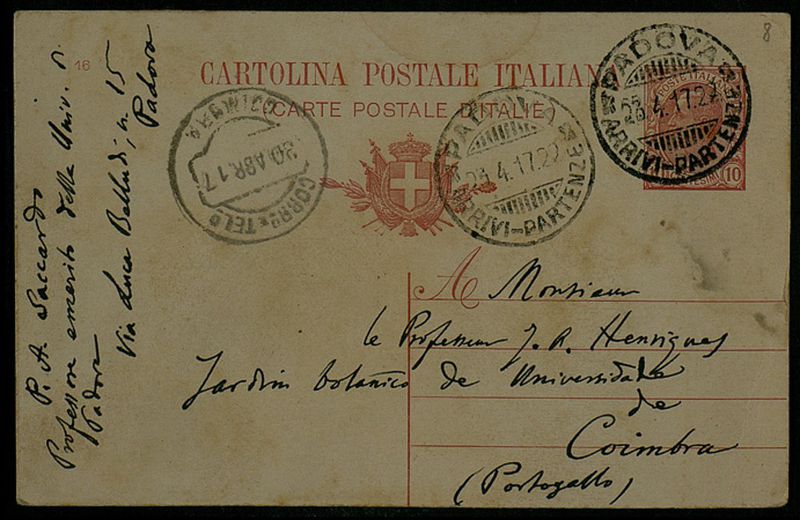 8
16
CARTOLINA POSTALE ITALIANA
CARTE POSTALE D'ITALIE
POSTE ITALIANE
10
CENTESIMI
PADOVA
23.4.17.22
ARRIVI-PARTENZE
PADOVA
23.4.17.22
ARRIVI-PARTENZE
30 ABR. 17
CORRº E TELº
A Monsieur
le Professeur J. A. Henriques
Jardim botanico de Universidade
de
Coimbra
(Portogallo)
P. A. Saccardo
Professore emerito della Univ. di
Padova
Via Luca Belludi, n. 15
Padova